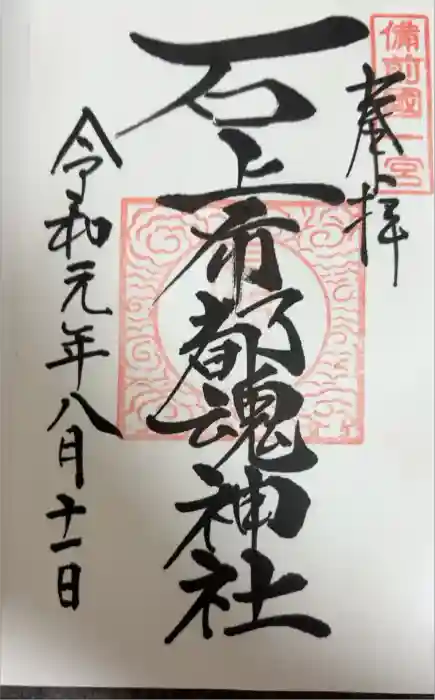 備前國一宮
奉拝
石上布都魂神社
令和元年八月十一日